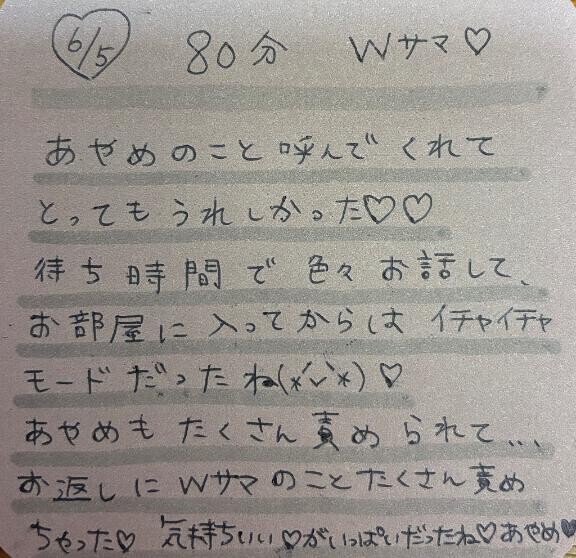 6/5 80分 Wサマ♡
あやめのこと呼んでくれて
とってもうれしかった♡♡
待ち時間で色々お話して、
お部屋に入ってからは イチャイチャ
モードだったね(*´˘`*)♡
あやめもたくさん責められて...
お返しにWサマのことたくさん責め
ちゃった♡ 気持ちいい♡がいっぱいだったね♡あやめ♥